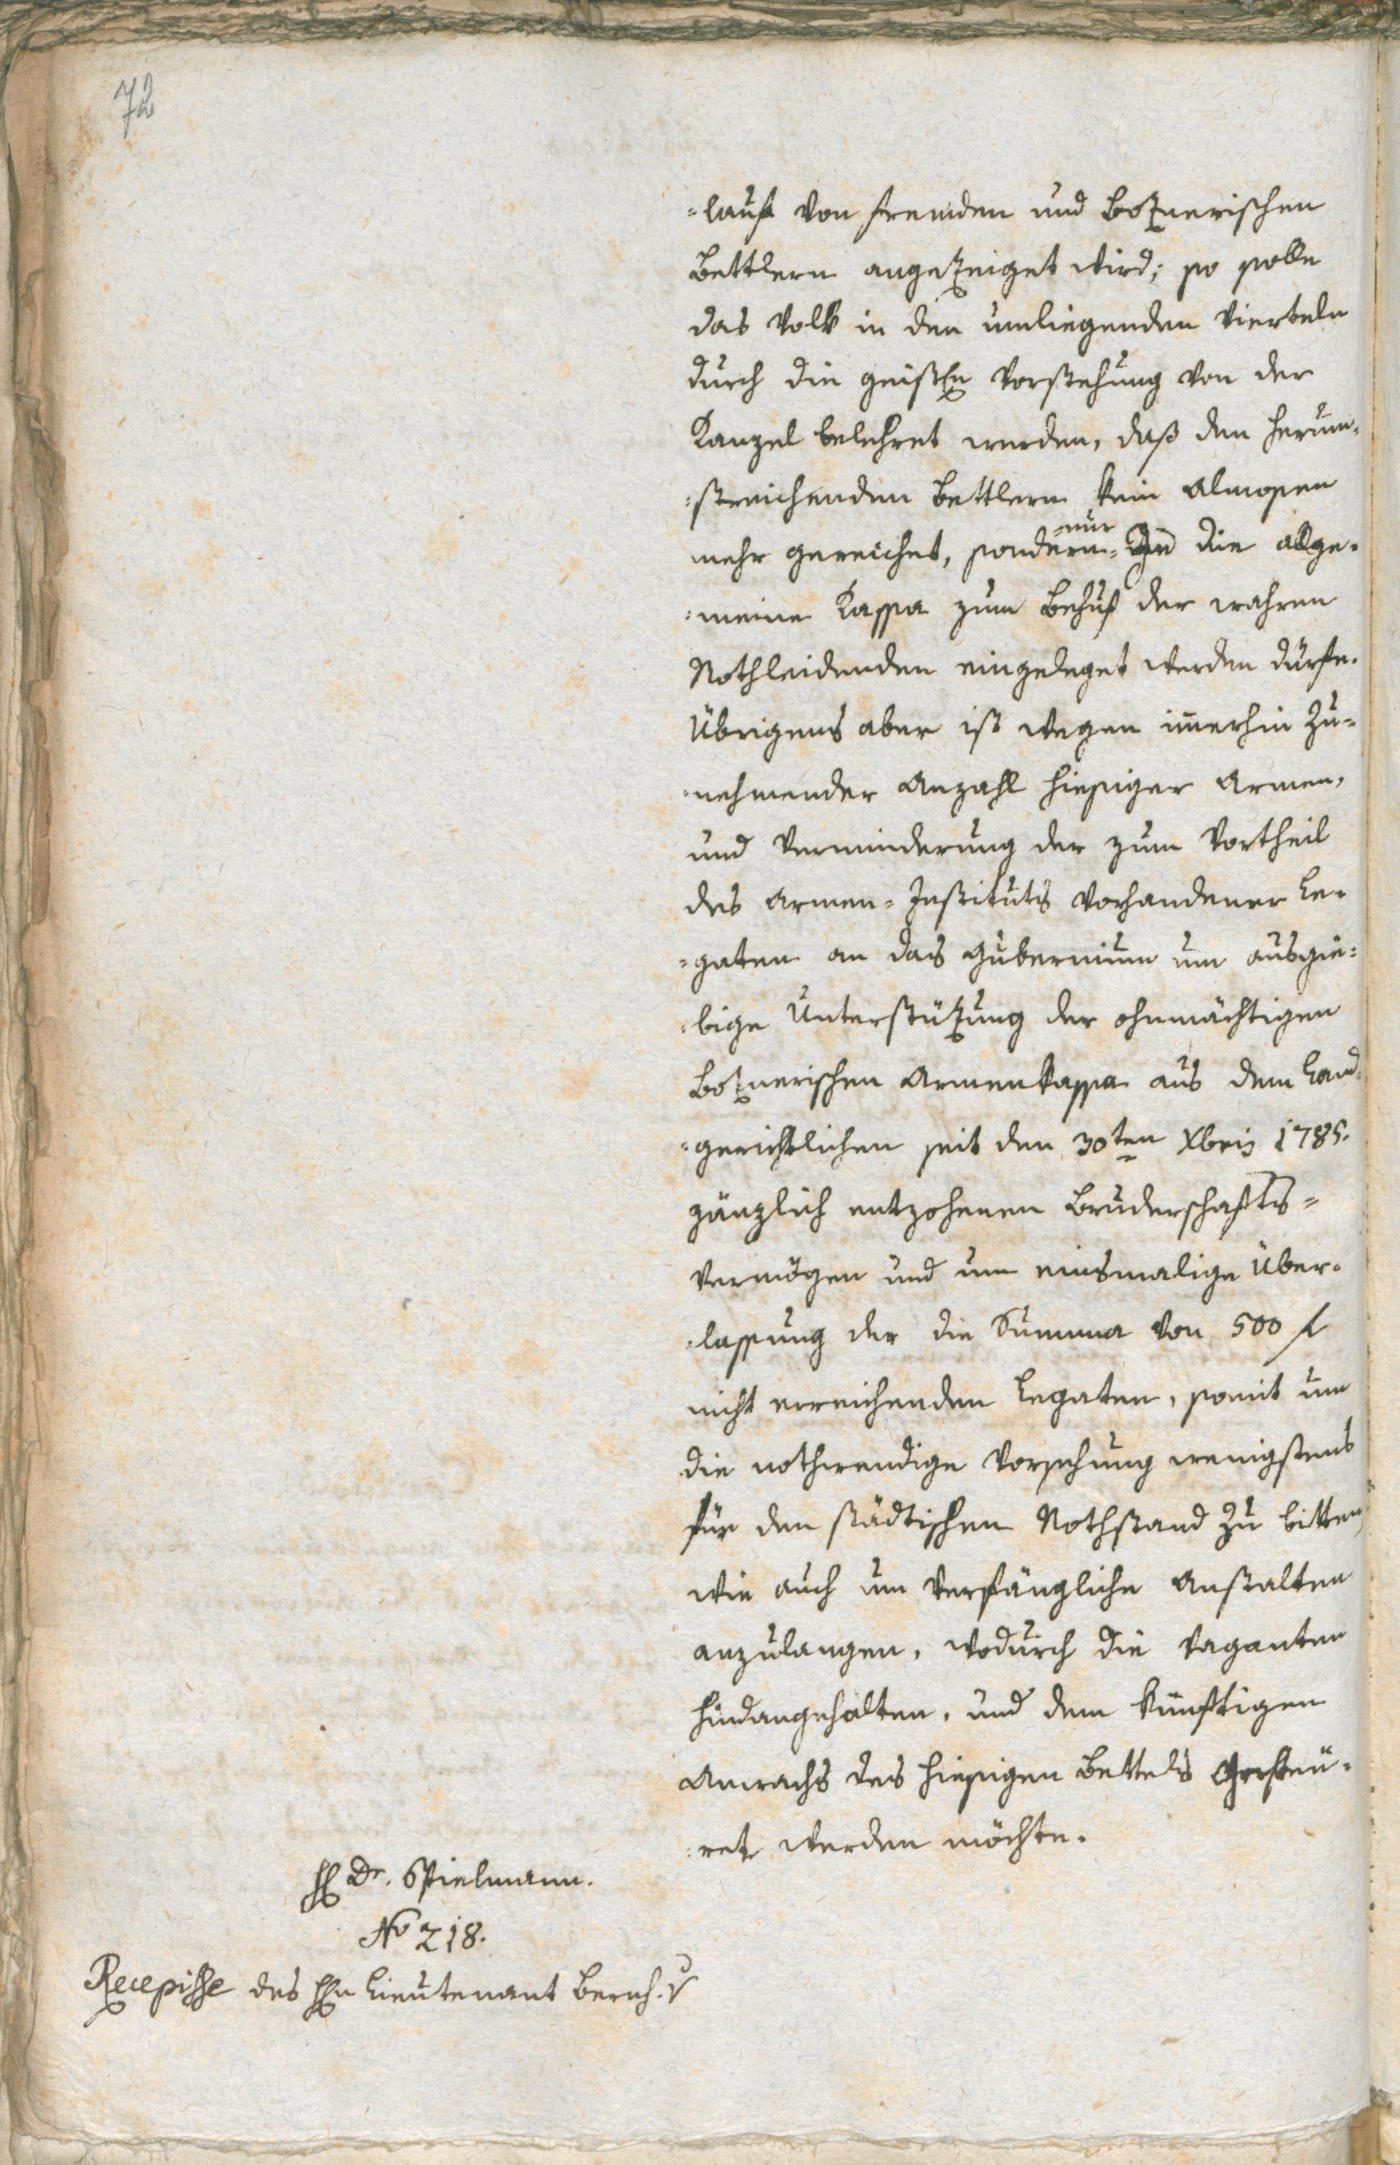 72
-lauf von fremden und Boznerischen
Bettlern angezeiget wird; so solle
das Volk in den umliegenden Vierteln
durch die geistln Vorstehung von der
Kanzel belehret werden, daß den herum-
-streichenden Bettlern kein Almosen
nur
mehr gereichet, sondern in die allge-
-meine Kassa zum Behuf der wahren
Nothleidenden eingeleget werden dürfe.
Übrigens aber ist wegen im̄erhin zu-
-nehmender Anzahl hiesiger Armen,
und Verminderung der zum Vortheil
des Armen-Instituts vorhandener Le-
-gaten an das Gubernium um ausgie-
-bige Unterstüzung der ohnmächtigen
Boznerischen Armenkassa aus dem Land-
-gerichtlichen seit den 30ten Xbris 1785.
gänzlich entzohenen Bruderschafts-
Vermögen und um einsmalige Über-
-lassung der die Summa von 500 f
nicht erreichenden Legaten, somit um
die nothwendige Vorsehung wenigstens
für den städtischen Nothstand zu bitten,
wie auch um verfängliche Anstalten
anzulangen, wodurch die Vaganten
hindangehalten, und dem künftigen
Anwachs des hiesigen Bettels gesteu-
-ret werden möchte.
H Dr. Spielmann.
No 218.
Recepisse des Hn Lieutenant Berch.